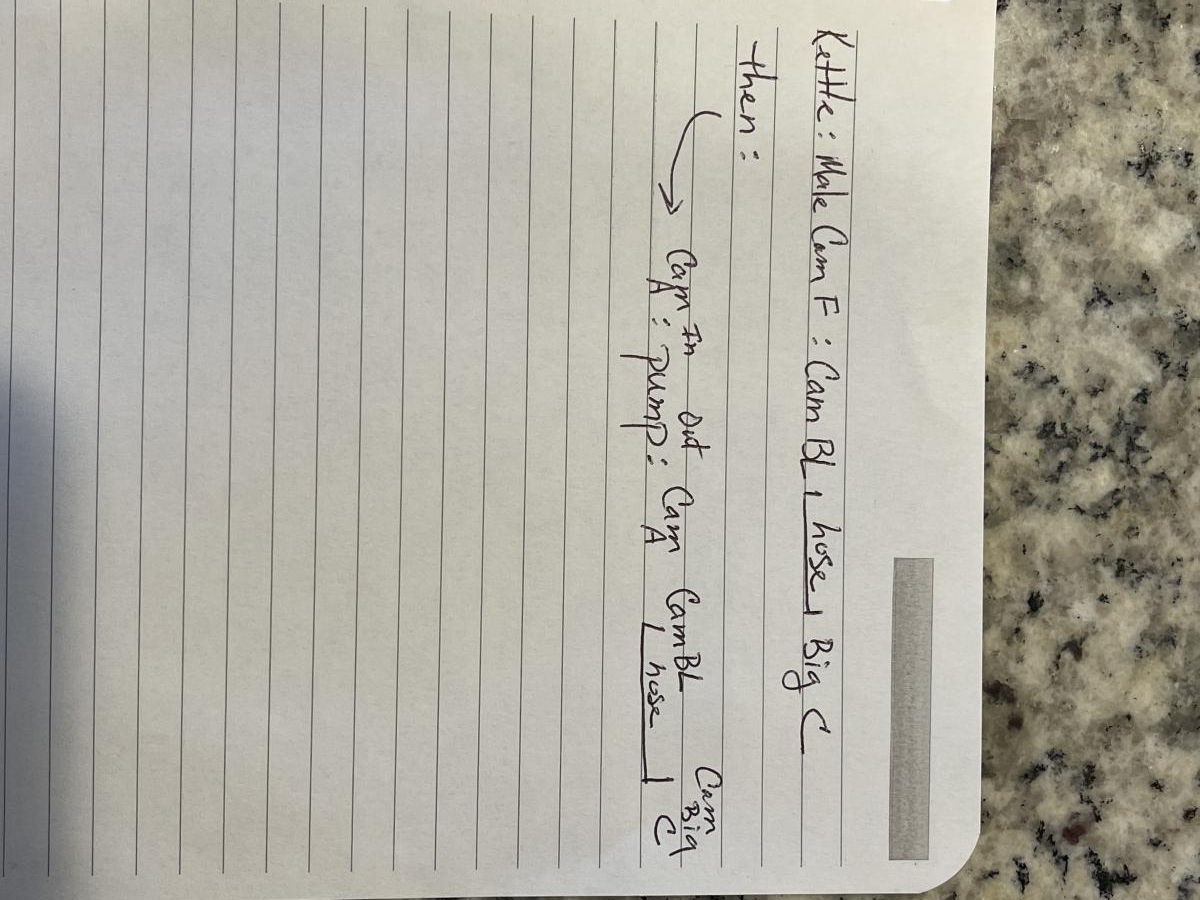 Kettle: Male Cam F: Cam BL hose Big C
then:
→ Cam A: In pump: Out Cam A Cam BL hose Cam Big C